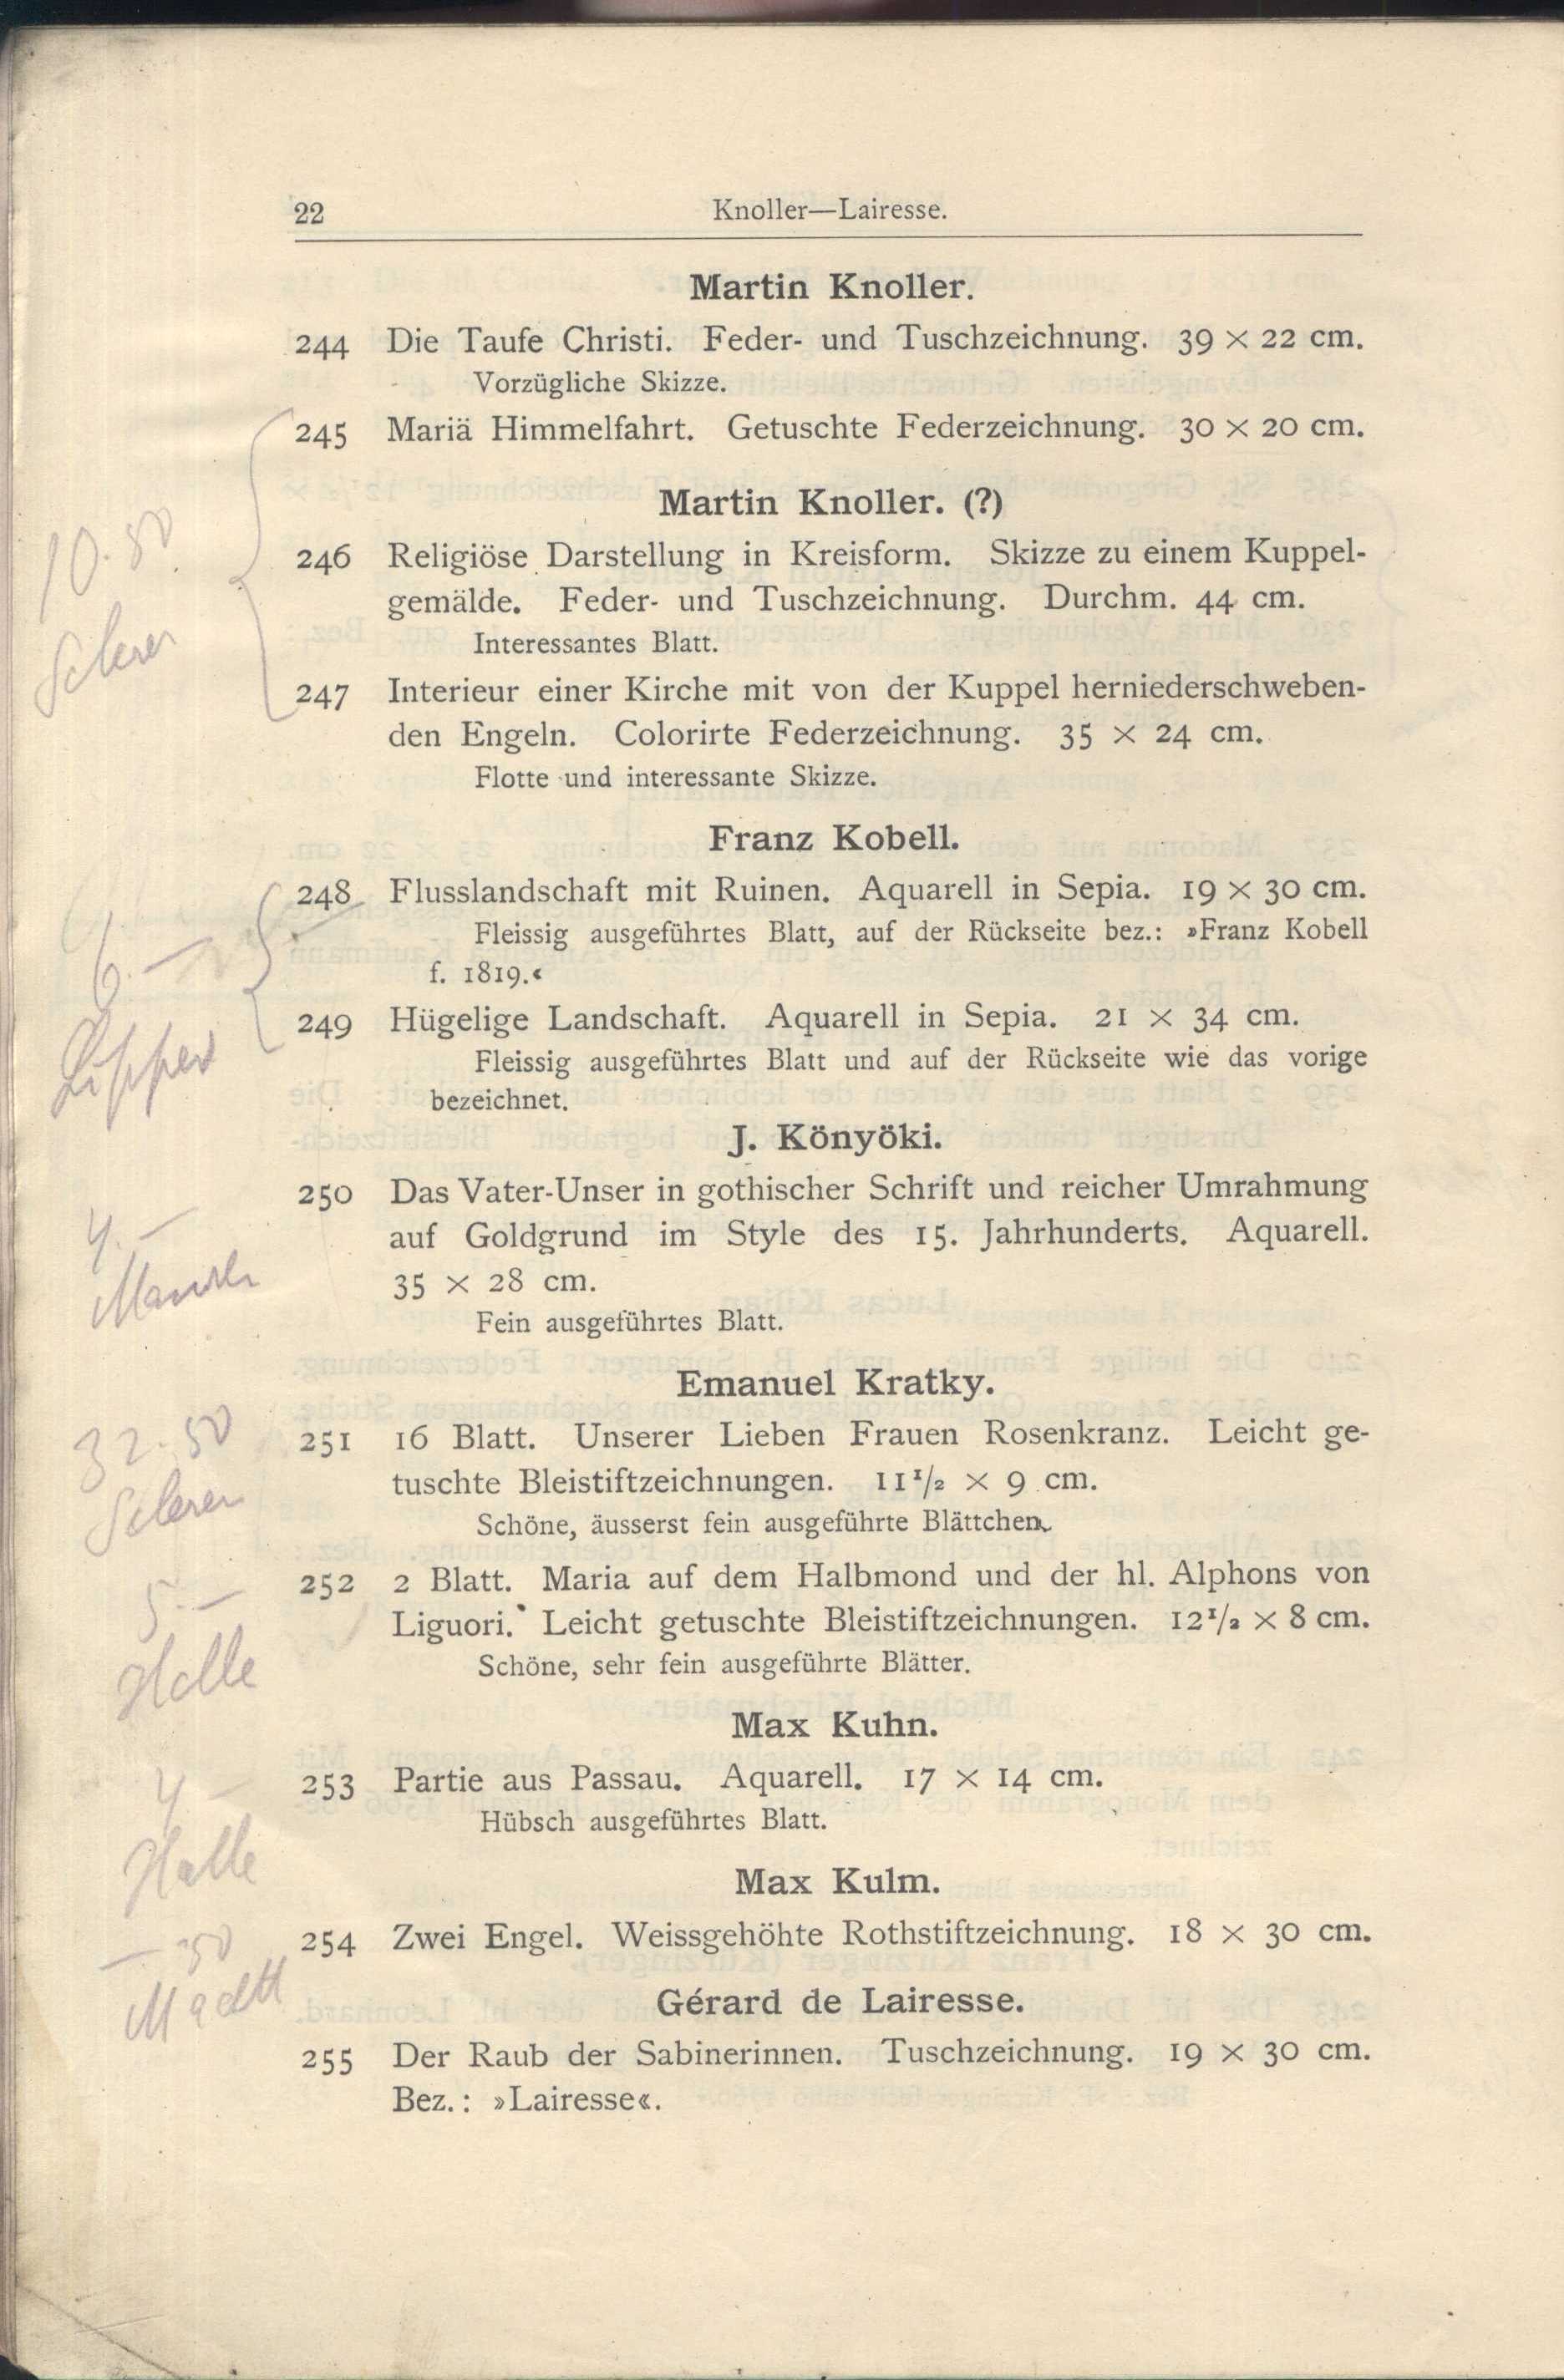 22
Knoller—Lairesse.
Martin Knoller.
244 Die Taufe Christi. Feder- und Tuschzeichnung. 39 × 22 cm.
Vorzügliche Skizze.
245 Mariä Himmelfahrt. Getuschte Federzeichnung. 30 × 20 cm.
Martin Knoller. (?)
10.50
246 Religiöse Darstellung in Kreisform. Skizze zu einem Kuppel-
gemälde. Feder- und Tuschzeichnung. Durchm. 44 cm.
Interessantes Blatt.
247 Interieur einer Kirche mit von der Kuppel herniederschweben-
den Engeln. Colorirte Federzeichnung. 35 × 24 cm.
Flotte und interessante Skizze.
Franz Kobell.
248 Flusslandschaft mit Ruinen. Aquarell in Sepia. 19 × 30 cm.
Fleissig ausgeführtes Blatt, auf der Rückseite bez.: »Franz Kobell
f. 1819.«
6.—
249 Hügelige Landschaft. Aquarell in Sepia. 21 × 34 cm.
Fleissig ausgeführtes Blatt und auf der Rückseite wie das vorige
bezeichnet.
J. Könyöki.
250 Das Vater-Unser in gothischer Schrift und reicher Umrahmung
auf Goldgrund im Style des 15. Jahrhunderts. Aquarell.
35 × 28 cm.
Fein ausgeführtes Blatt.
4.—
Emanuel Kratky.
32.50
251 16 Blatt. Unserer Lieben Frauen Rosenkranz. Leicht ge-
tuschte Bleistiftzeichnungen. 11½ × 9 cm.
Schöne, äusserst fein ausgeführte Blättchen.
5.—
252 2 Blatt. Maria auf dem Halbmond und der hl. Alphons von
Liguori. Leicht getuschte Bleistiftzeichnungen. 12½ × 8 cm.
Schöne, sehr fein ausgeführte Blätter.
Halle
Max Kuhn.
4.—
253 Partie aus Passau. Aquarell. 17 × 14 cm.
Hübsch ausgeführtes Blatt.
Halle
Max Kulm.
—.50
254 Zwei Engel. Weissgehöhte Rothstiftzeichnung. 18 × 30 cm.
Gérard de Lairesse.
255 Der Raub der Sabinerinnen. Tuschzeichnung. 19 × 30 cm.
Bez.: »Lairesse«.